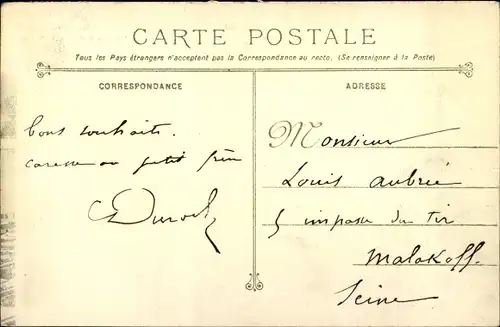 CARTE POSTALE
Tous les Pays étrangers n'acceptent pas la Correspondance au recto. (Se renseigner à la Poste)
CORRESPONDANCE
bons souhaits.
caresse au petit frère
ADRESSE
Monsieur
Louis Aubrée
5 impasse du Tir
Malakoff.
Seine